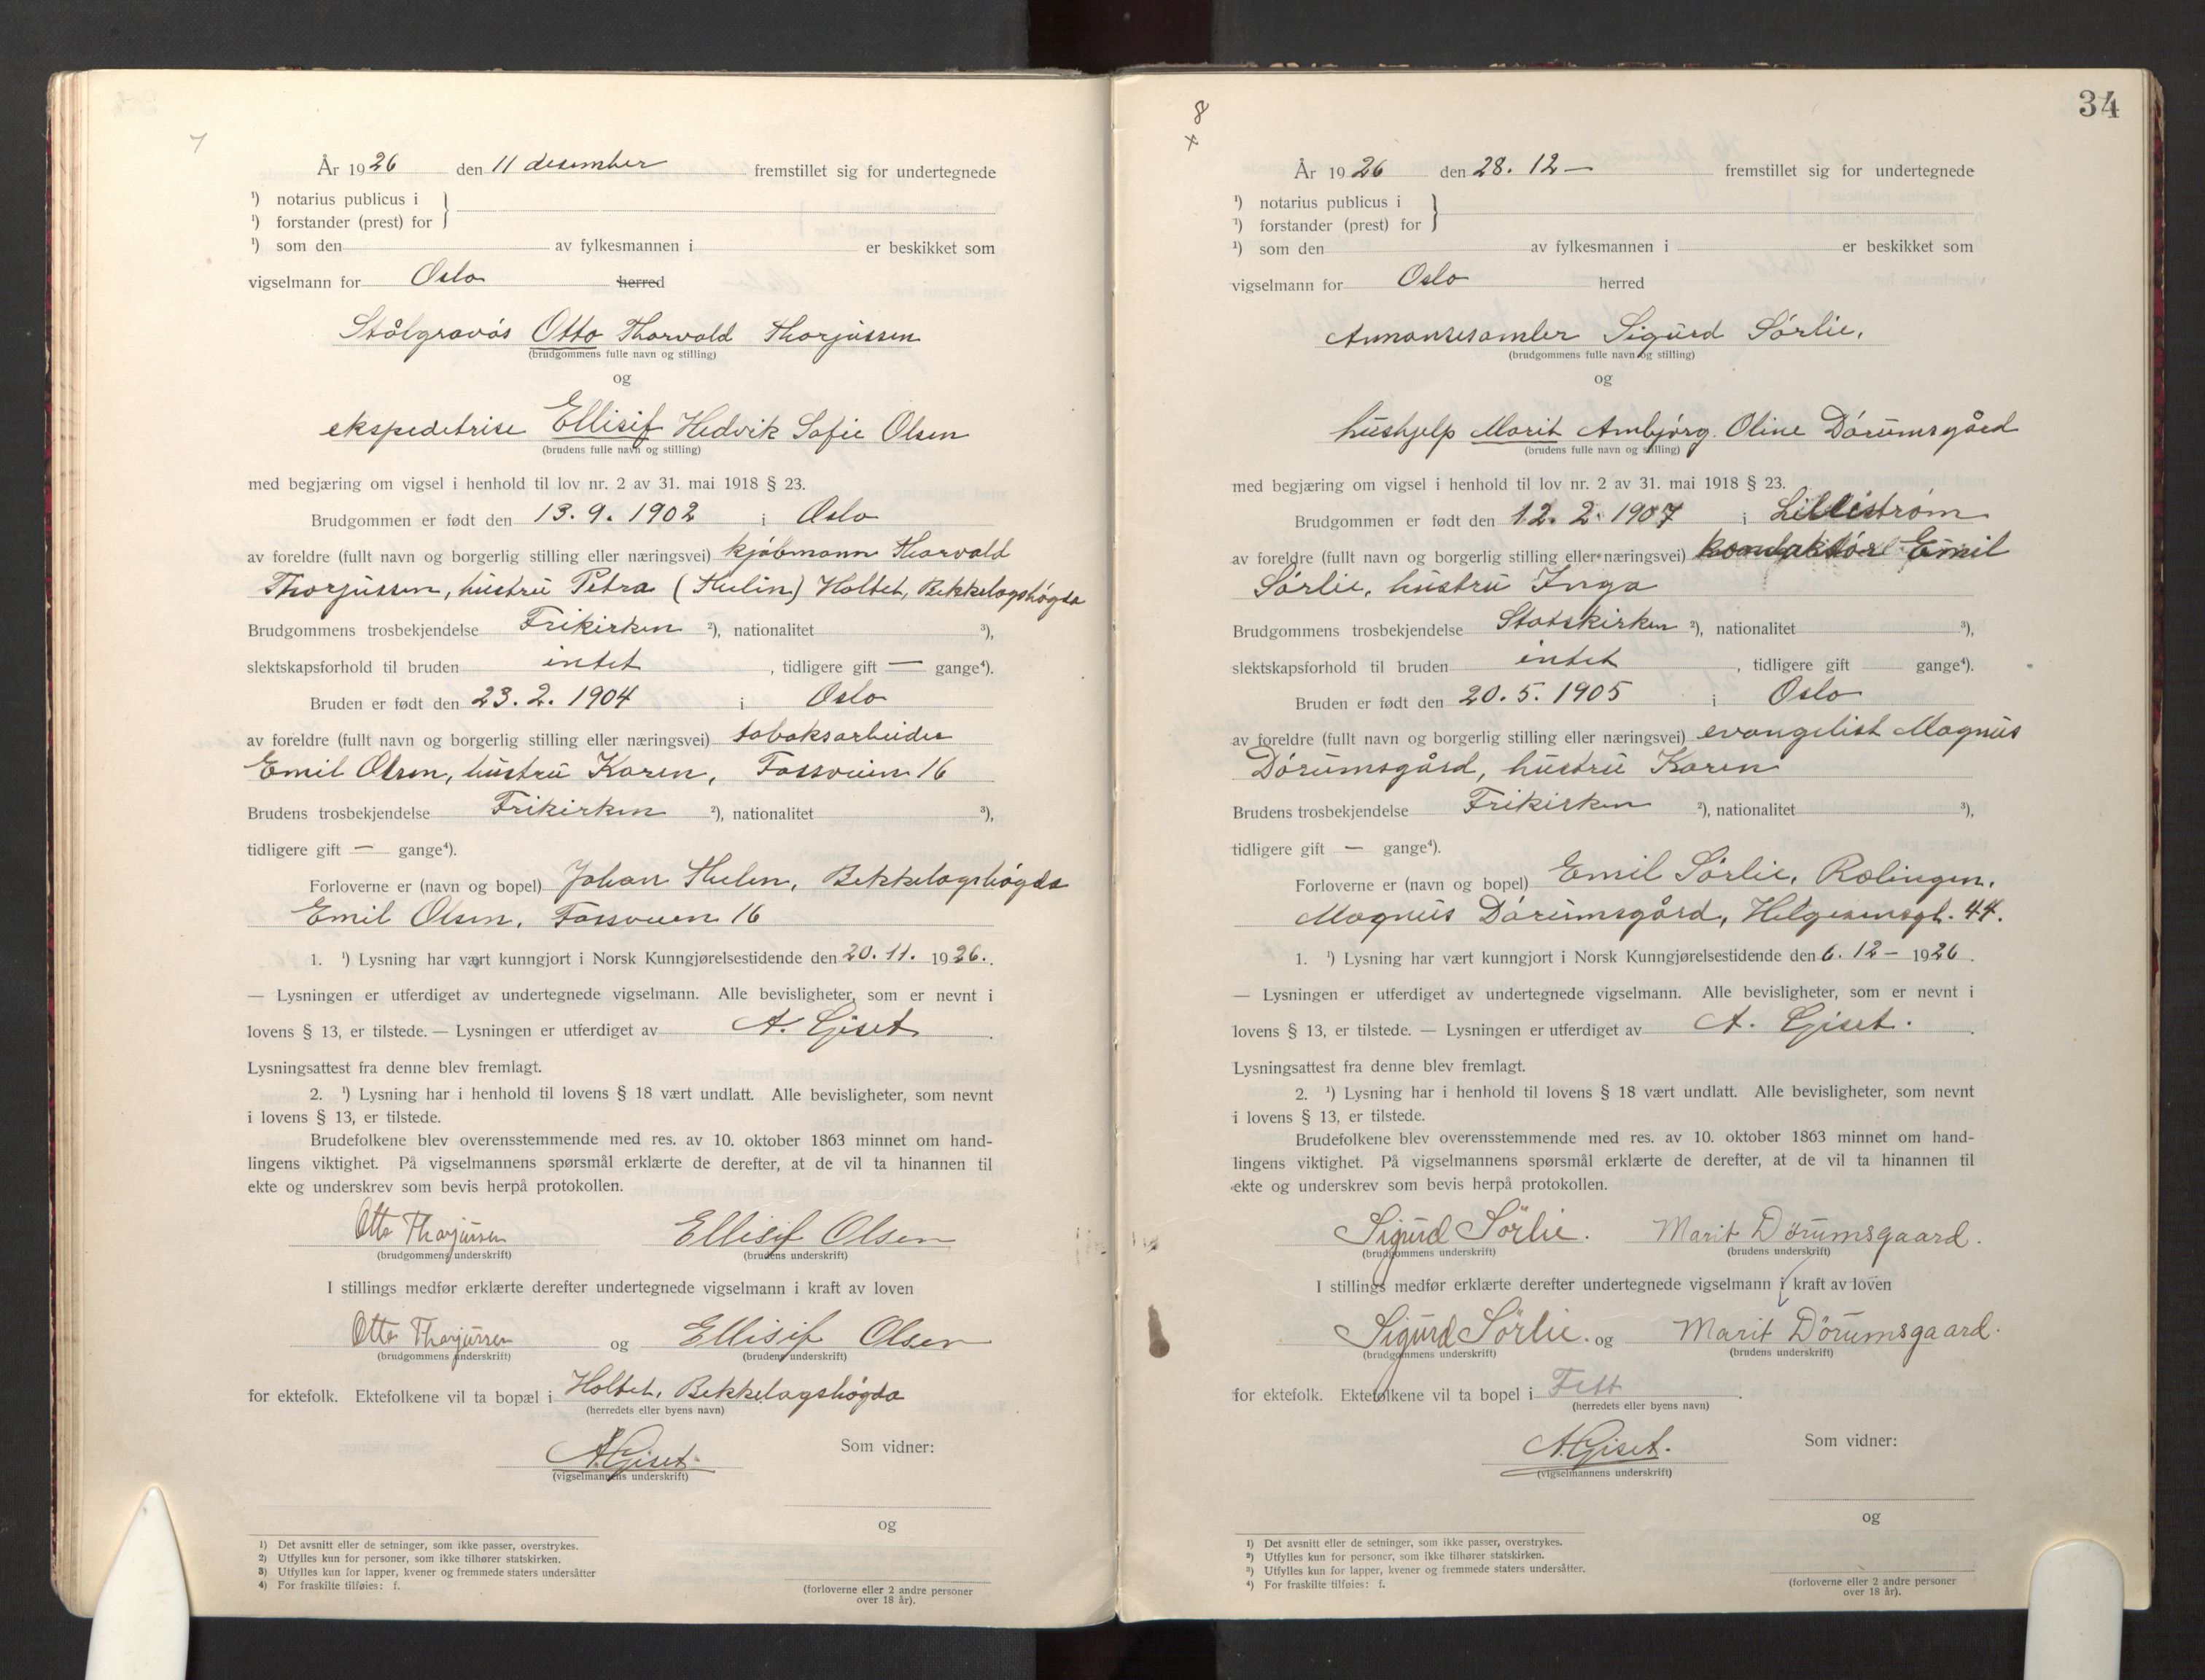 7
År 1926 den 11 desember fremstillet sig for undertegnede
¹) notarius publicus i
¹) forstander (prest) for
¹) som den av fylkesmannen i er beskikket som
vigselmann for Oslo herred
Stålgravør Otto Thorvald Thorjussen
(brudgommens fulle navn og stilling)
og
ekspeditrise Ellisif Hedvik Sofie Olsen
(brudens fulle navn og stilling)
med begjæring om vigsel i henhold til lov nr. 2 av 31. mai 1918 § 23.
Brudgommen er født den 13. 9. 1902 i Oslo
av foreldre (fullt navn og borgerlig stilling eller næringsvei) kjøbmann Thorvald
Thorjussen, hustru Petra (Thelin) Holtet, Bekkelagshøgda
Brudgommens trosbekjendelse Frikirken ²), nationalitet ³),
slektskapsforhold til bruden intet, tidligere gift — gange⁴).
Bruden er født den 23. 2. 1904 i Oslo
av foreldre (fullt navn og borgerlig stilling eller næringsvei) tobaksarbeider
Emil Olsen, hustru Karen, Fossveien 16
Brudens trosbekjendelse Frikirken ²), nationalitet ³),
tidligere gift — gange⁴).
Forloverne er (navn og bopel) Johan Thelen, Bekkelagshøgda
Emil Olsen, Fossveien 16
1. ¹) Lysning har vært kunngjort i Norsk Kunngjørelsestidende den 20. 11. 1926.
— Lysningen er utferdiget av undertegnede vigselmann. Alle bevisligheter, som er nevnt i
lovens § 13, er tilstede. — Lysningen er utferdiget av A. Giset
Lysningsattest fra denne blev fremlagt.
2. ¹) Lysning har i henhold til lovens § 18 vært undlatt. Alle bevisligheter, som nevnt
i lovens § 13, er tilstede.
Brudefolkene blev overensstemmende med res. av 10. oktober 1863 minnet om hand-
lingens viktighet. På vigselmannens spørsmål erklærte de derefter, at de vil ta hinannen til
ekte og underskrev som bevis herpå protokollen.
Otto Thorjussen Ellisif Olsen
(brudgommens underskrift) (brudens underskrift)
I stillings medfør erklærte derefter undertegnede vigselmann i kraft av loven
Otto Thorjussen og Ellisif Olsen
(brudgommens underskrift) (brudens underskrift)
for ektefolk. Ektefolkene vil ta bopæl i Holtet, Bekkelagshøgda
(herredets eller byens navn)
A. Giset. Som vidner:
(vigselmannens underskrift)
og
1) Det avsnitt eller de setninger, som ikke passer, overstrykes.
2) Utfylles kun for personer, som ikke tilhører statskirken.
3) Utfylles kun for lapper, kvener og fremmede staters undersåtter
4) For fraskilte tilføies: f.
(forloverne eller 2 andre personer
over 18 år).
34
8
x
År 1926 den 28. 12 — fremstillet sig for undertegnede
¹) notarius publicus i
¹) forstander (prest) for
¹) som den av fylkesmannen i er beskikket som
vigselmann for Oslo herred
Annonsesamler Sigurd Sørlie.
(brudgommens fulle navn og stilling)
og
hushjelp Marit Ambjørg. Oline Dørumsgård
(brudens fulle navn og stilling)
med begjæring om vigsel i henhold til lov nr. 2 av 31. mai 1918 § 23.
Brudgommen er født den 12. 2. 1907 i Lillestrøm
av foreldre (fullt navn og borgerlig stilling eller næringsvei) konduktør Emil
Sørlie, hustru Inga
Brudgommens trosbekjendelse Statskirken ²), nationalitet ³),
slektskapsforhold til bruden intet, tidligere gift gange⁴).
Bruden er født den 20. 5. 1905 i Oslo
av foreldre (fullt navn og borgerlig stilling eller næringsvei) evangelist Magnus
Dørumsgård, hustru Karen
Brudens trosbekjendelse Frikirken ²), nationalitet ³),
tidligere gift — gange⁴).
Forloverne er (navn og bopel) Emil Sørlie, Rælingen.
Magnus Dørumsgård, Helgesensgt. 44.
1. ¹) Lysning har vært kunngjort i Norsk Kunngjørelsestidende den 6. 12 — 1926.
— Lysningen er utferdiget av undertegnede vigselmann. Alle bevisligheter, som er nevnt i
lovens § 13, er tilstede. — Lysningen er utferdiget av A. Giset.
Lysningsattest fra denne blev fremlagt.
2. ¹) Lysning har i henhold til lovens § 18 vært undlatt. Alle bevisligheter, som nevnt
i lovens § 13, er tilstede.
Brudefolkene blev overensstemmende med res. av 10. oktober 1863 minnet om hand-
lingens viktighet. På vigselmannens spørsmål erklærte de derefter, at de vil ta hinannen til
ekte og underskrev som bevis herpå protokollen.
Sigurd Sørlie. Marit Dørumsgaard.
(brudgommens underskrift) (brudens underskrift)
I stillings medfør erklærte derefter undertegnede vigselmann i kraft av loven
Sigurd Sørlie. og Marit Dørumsgaard.
(brudgommens underskrift) (brudens underskrift)
for ektefolk. Ektefolkene vil ta bopel i Fett.
(herredets eller byens navn)
A. Giset. Som vidner:
(vigselmannens underskrift)
og
1) Det avsnitt eller de setninger, som ikke passer, overstrykes.
2) Utfylles kun for personer, som ikke tilhører statskirken.
3) Utfylles kun for lapper, kvener og fremmede staters undersåtter.
4) For fraskilte tilføies: f.
(forloverne eller 2 andre personer
over 18 år).